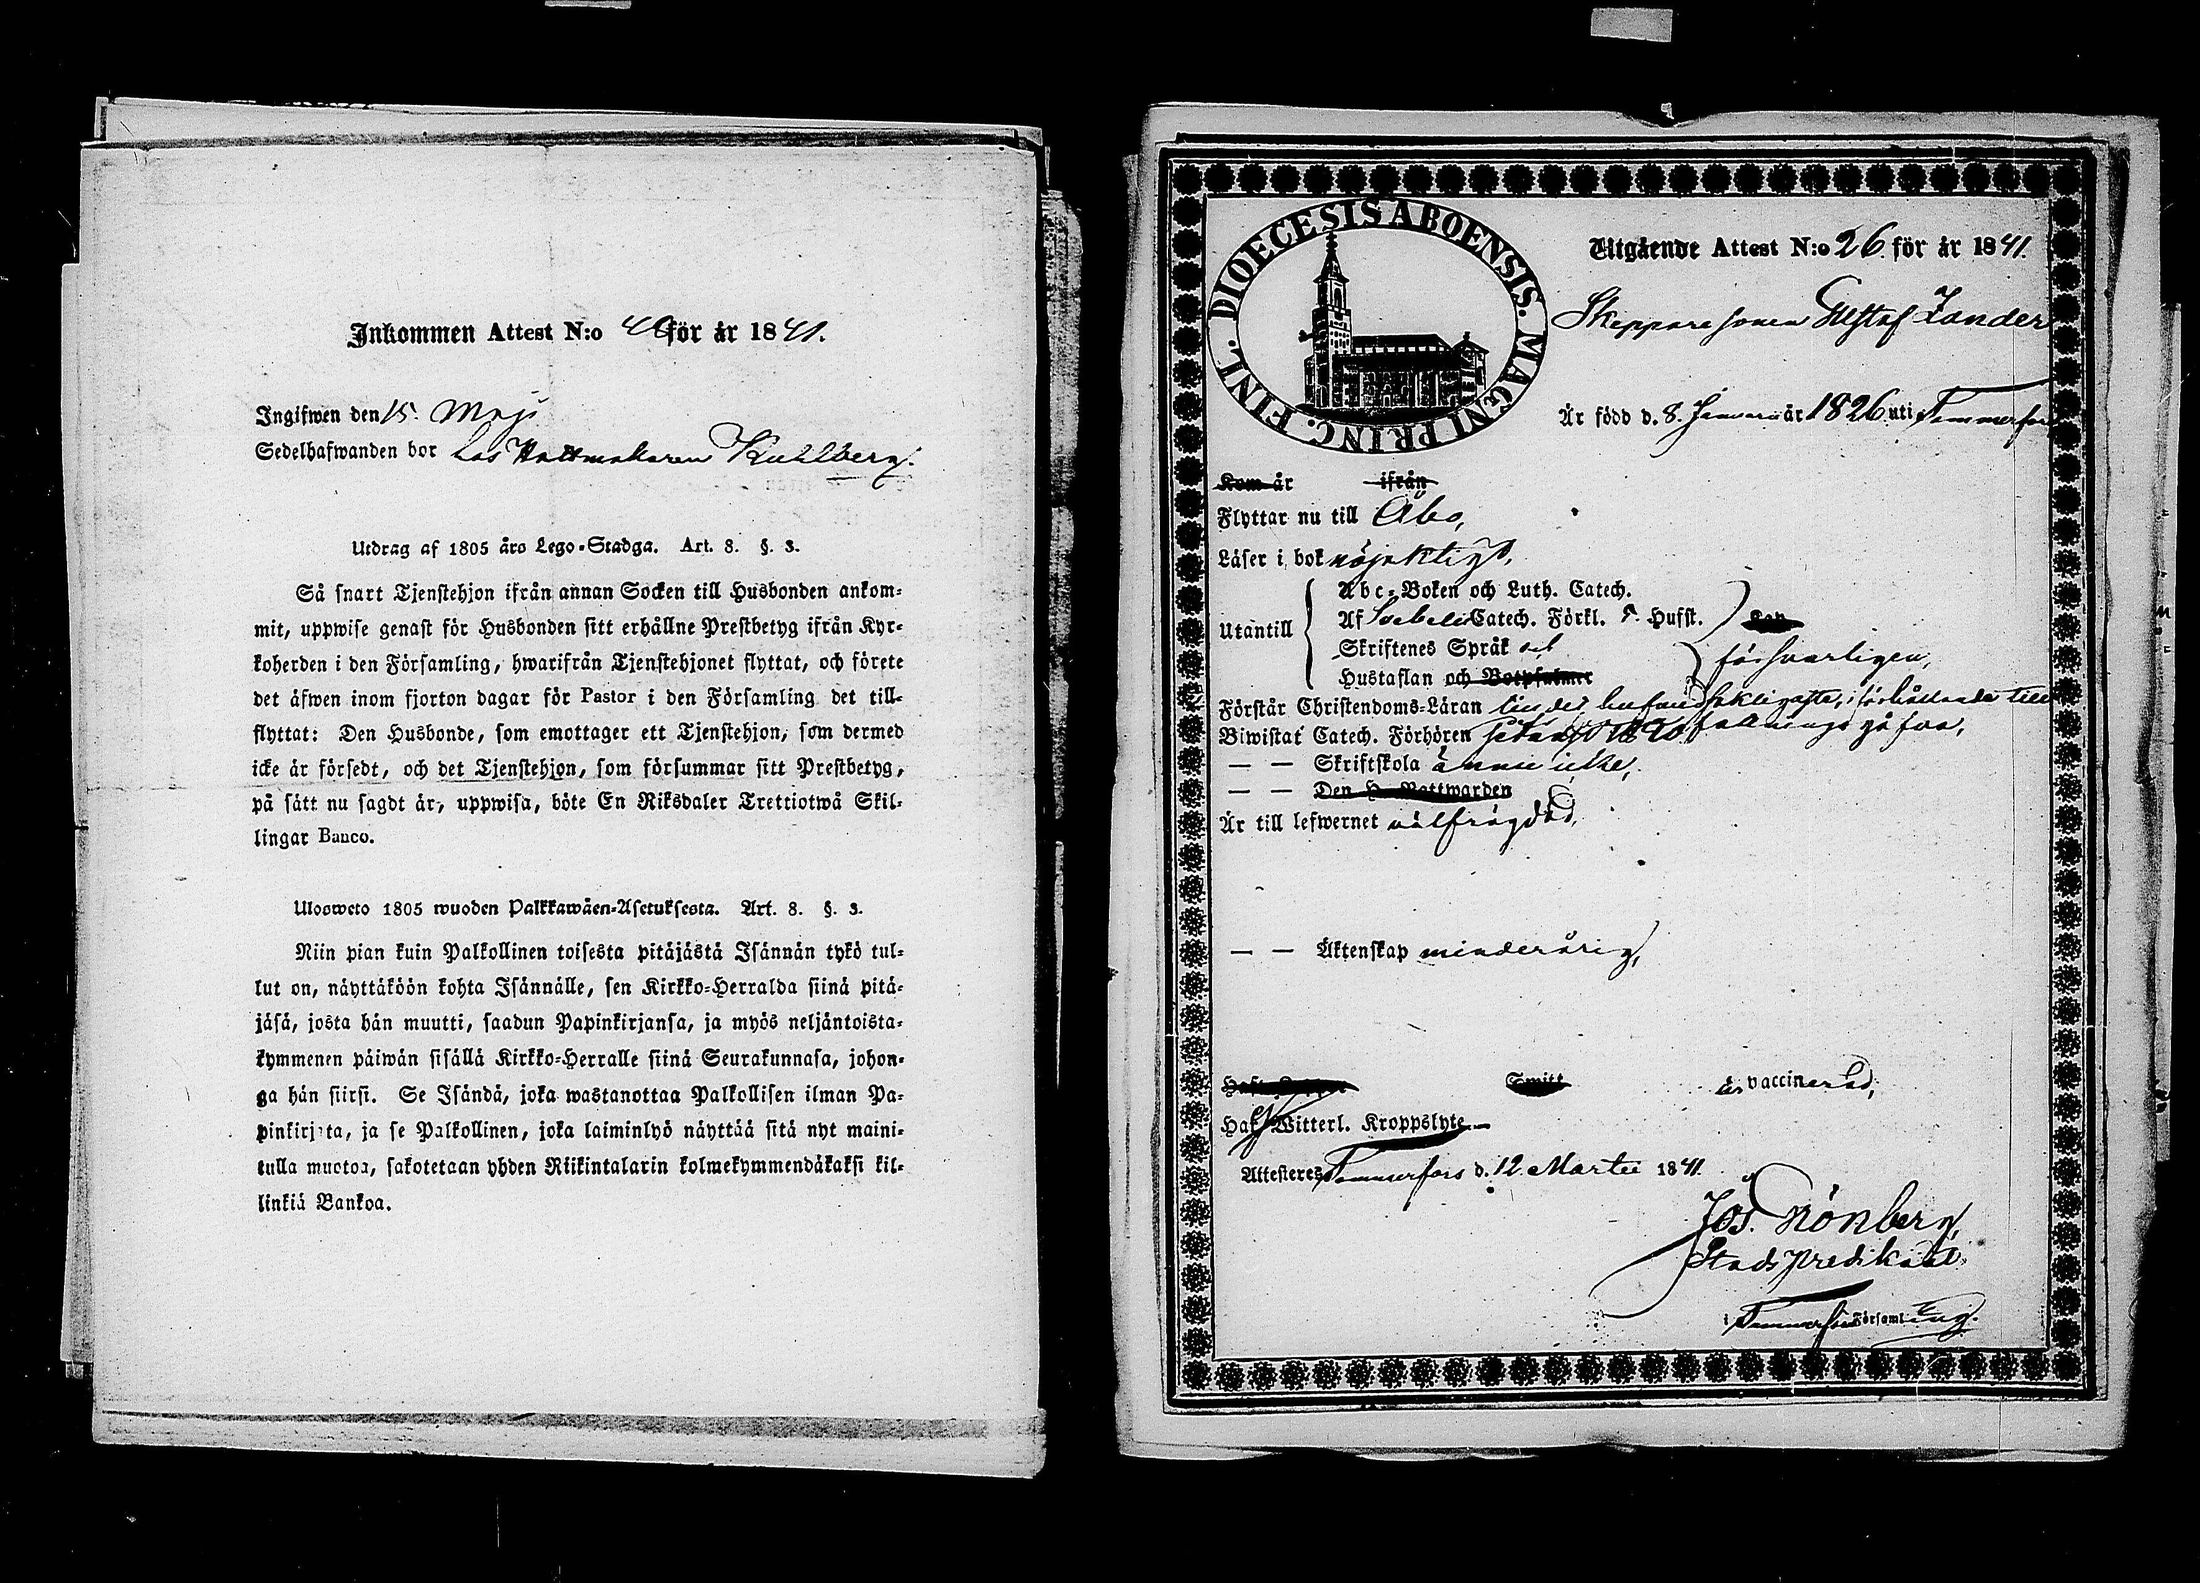 Inkommen Attest N:o för år 1841.
Ingifwen den 15. Maji
Sedelhafwanden bor hos Hattmakaren Kuhlberg.
Utdrag af 1805 års Lego-Stadga. Art. 8. §. 3.
Så snart Tjenstehjon ifrån annan Socken till Husbonden ankom-
mit, uppwise genast för Husbonden sitt erhållne Prestbetyg ifrån Kyr-
koherden i den Församling, hwarifrån Tjenstehjonet flyttat, och förete
det äfwen inom fjorton dagar för Pastor i den Församling det till-
flyttat: Den Husbonde, som emottager ett Tjenstehjon, som dermed
icke är försedt, och det Tjenstehjon, som försummar sitt Prestbetyg,
på sätt nu sagdt är, uppwisa, böte En Riksdaler Trettiotwå Skil-
lingar Banco.
Ulosweto 1805 wuoden Palkkawäen-Asetuksesta. Art. 8. §. 3.
Niin pian kuin Palkollinen toisesta pitäjästä Isännän tykö tul-
lut on, näyttäköön kohta Isännälle, sen Kirkko-Herralda siinä pitä-
jäsä, josta hän muutti, saadun Papinkirjansa, ja myös neljäntoista-
kymmenen päiwän sisällä Kirkko-Herralle siinä Seurakunnasa, johon-
ga hän siirsi. Se Isändä, joka wastanottaa Palkollisen ilman Pa-
pinkirjata, ja se Palkollinen, joka laiminlyö näyttää sitä nyt maini-
tulla muotoa, sakotetaan yhden Riikintalarin kolmekymmendäkaksi kil-
linkiä Bankoa.
DIOECESIS ABOENSIS. MAGNI PRINC. FINL.
Utgående Attest N:o 26. för år 1841.
Skepparesonen Gustaf Zander
Är född d. 8. Januari år 1826 uti Tammerfors
Kom år ifrån
Flyttar nu till Åbo,
Läser i bok nöjaktigt,
Utantill
Abc-Boken och Luth. Catech.
Af Svebelii Catech. Förkl. 5. Hufst.
Skriftenes Språk och
Hustaflan och Botpsalmer
försvarligen,
Förstår Christendoms-Läran i förhållande till
Biwistat Catech. Förhören sedan 1840 fattnings gåfva,
— — Skriftskola ännu icke,
— — Den H. Nattwarden
Är till lefwernet välfrägdad,
— — Äktenskap minderårig,
är vaccinerad,
Haf. Witterl. Kroppslyte
Attesteres Tammerfors d. 12. Martii 1841.
Jos. Grönberg,
Stads predikant.
i Tammerfors Församling.